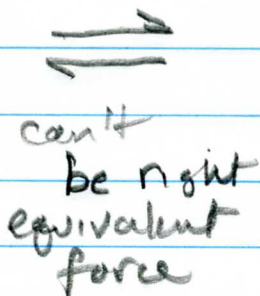 can't
be right
equivalent
force